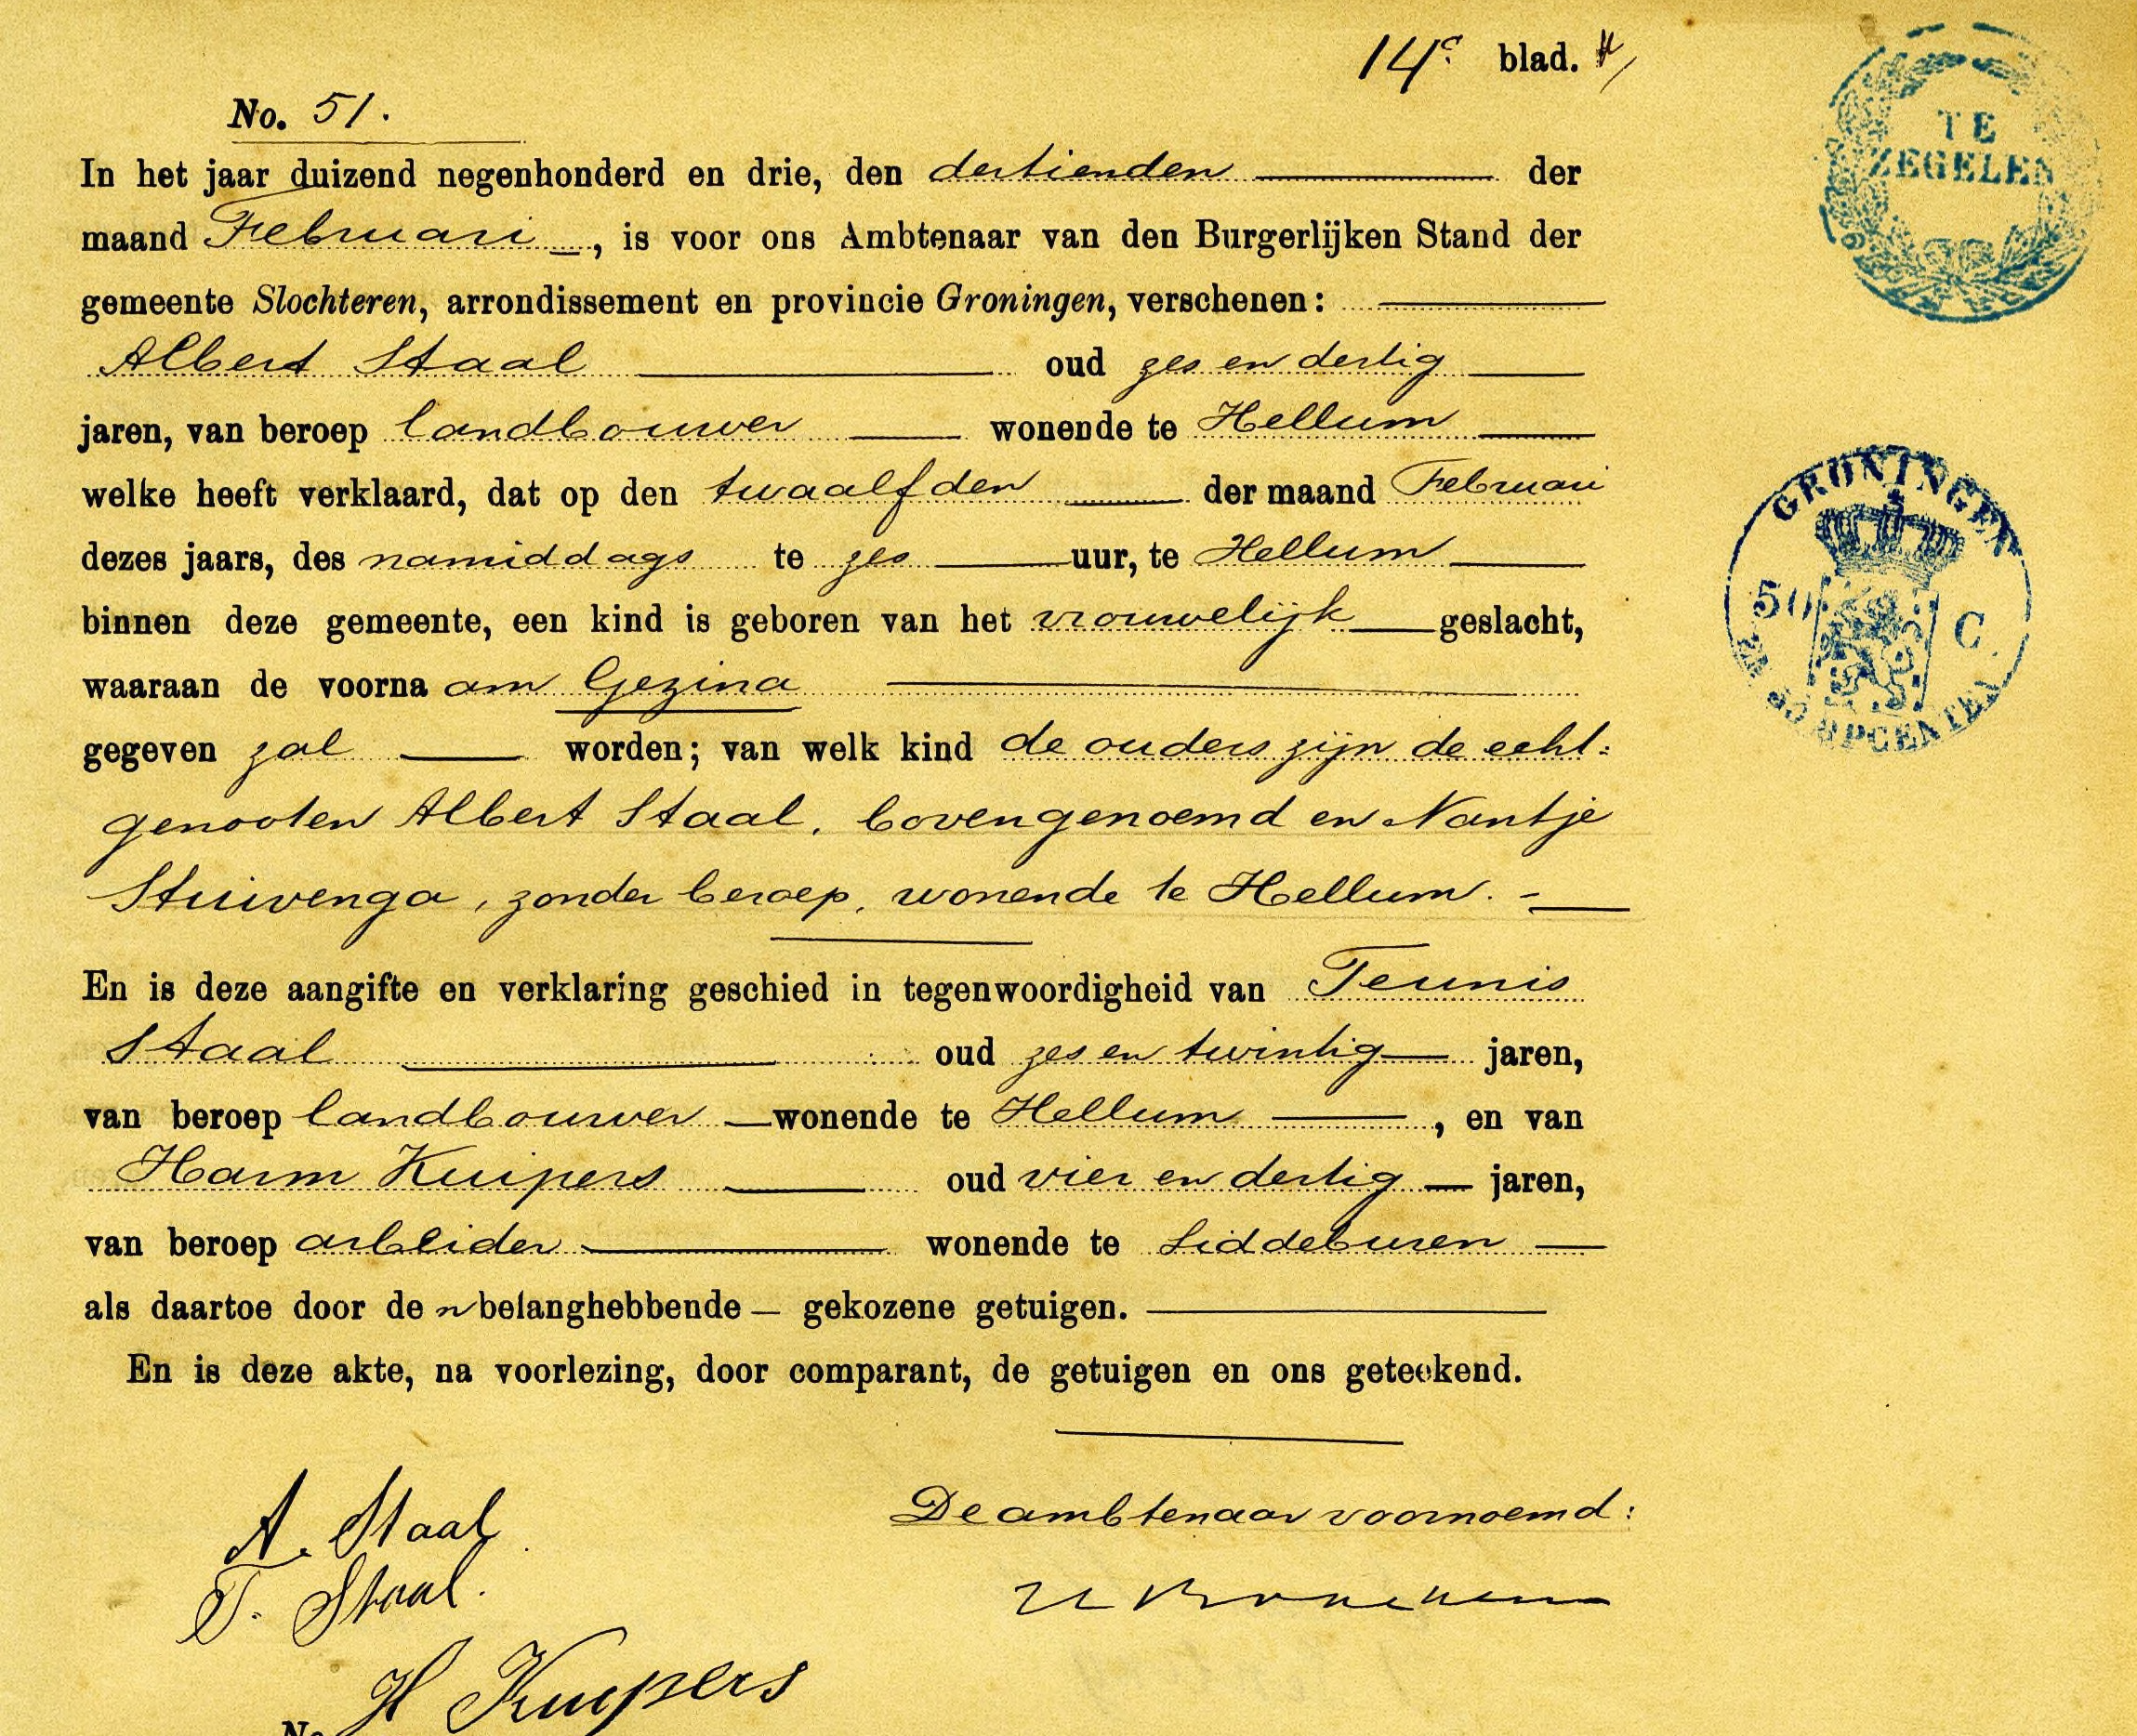 14e blad.
No. 51.
In het jaar duizend negenhonderd en drie, den dertienden der
maand Februari, is voor ons Ambtenaar van den Burgerlijken Stand der
gemeente Slochteren, arrondissement en provincie Groningen, verschenen:
Albert Staal oud zes en dertig
jaren, van beroep landbouwer wonende te Hellum
welke heeft verklaard, dat op den twaalfden der maand Februari
dezes jaars, des namiddags te zes uur, te Hellum
binnen deze gemeente, een kind is geboren van het vrouwelijk geslacht,
waaraan de voornaam Gezina
gegeven zal worden; van welk kind de ouders zijn de echt=
genooten Albert Staal, bovengenoemd en Nantje
Stuivenga, zonder beroep, wonende te Hellum.
En is deze aangifte en verklaring geschied in tegenwoordigheid van Teunis
Staal oud zes en twintig jaren,
van beroep landbouwer wonende te Hellum, en van
Harm Kuipers oud vier en dertig jaren,
van beroep arbeider wonende te Siddeburen
als daartoe door den belanghebbende gekozene getuigen.
En is deze akte, na voorlezing, door comparant, de getuigen en ons geteekend.
De ambtenaar voornoemd:
A. Staal
T. Staal.
H Kuipers
No
TE
ZEGELEN
GRONINGEN
50 C.